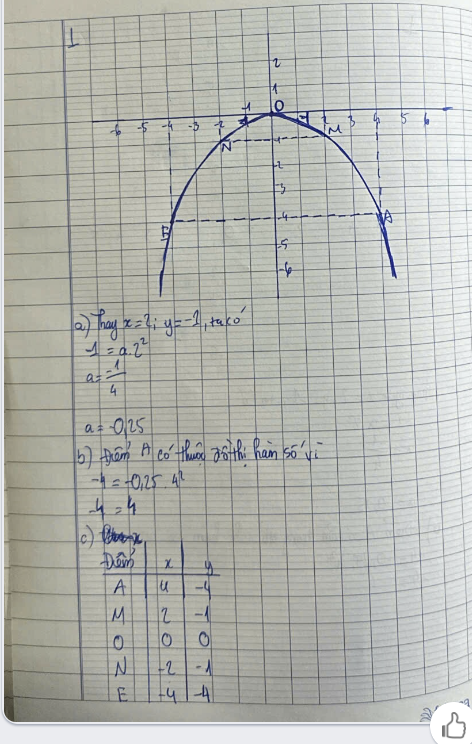 1
2
1
O
-6 -5 -4 -3 -2 -1 1 2 3 4 5 6
N -1 M
-2
-3
E -4 A
-5
-6
a) Thay x=2; y=-1, ta có
-1 = a.2²
a = -1/4
a = -0,25
b) Điểm A có thuộc đồ thị hàm số vì
-4 = -0,25 . 4²
-4 = 4
c)
Điểm x y
A 4 -4
M 2 -1
O 0 0
N -2 -1
E -4 -4